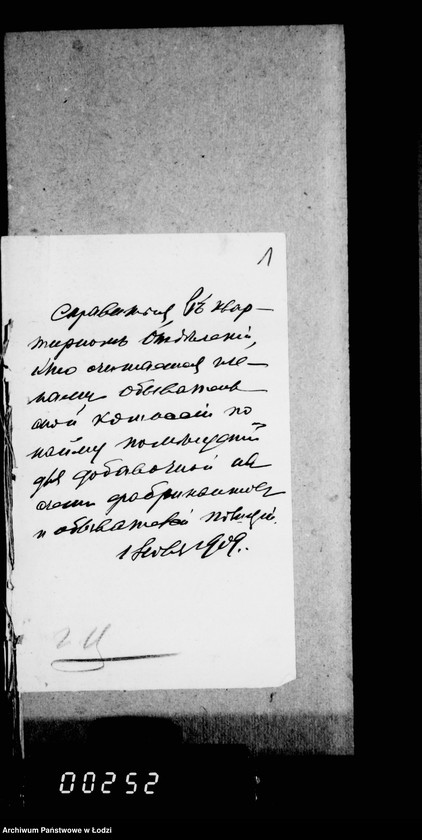 1
Справиться въ квар-
тирномъ Отдѣленіи,
кто считается
обыватель
ской комиссіи по
найму помѣщеній
для добавочной на
фабрикантовъ
и обывателей полиціи.
1909.
00252
Archiwum Państwowe w Łodzi